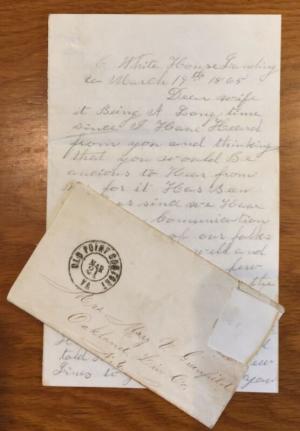 White House Landing
March 19th 1865
Dear wife
it Being A Long time
since I Have Heared
from you and thinking
that you would Be
ancious to Hear from
for it Has Ben
since we Hear
Comunication
of our folks
well and
few
the
OLD POINT COMFORT
MAR
21
VA
Mrs Mary
Oakland
Co
told
Lines to you